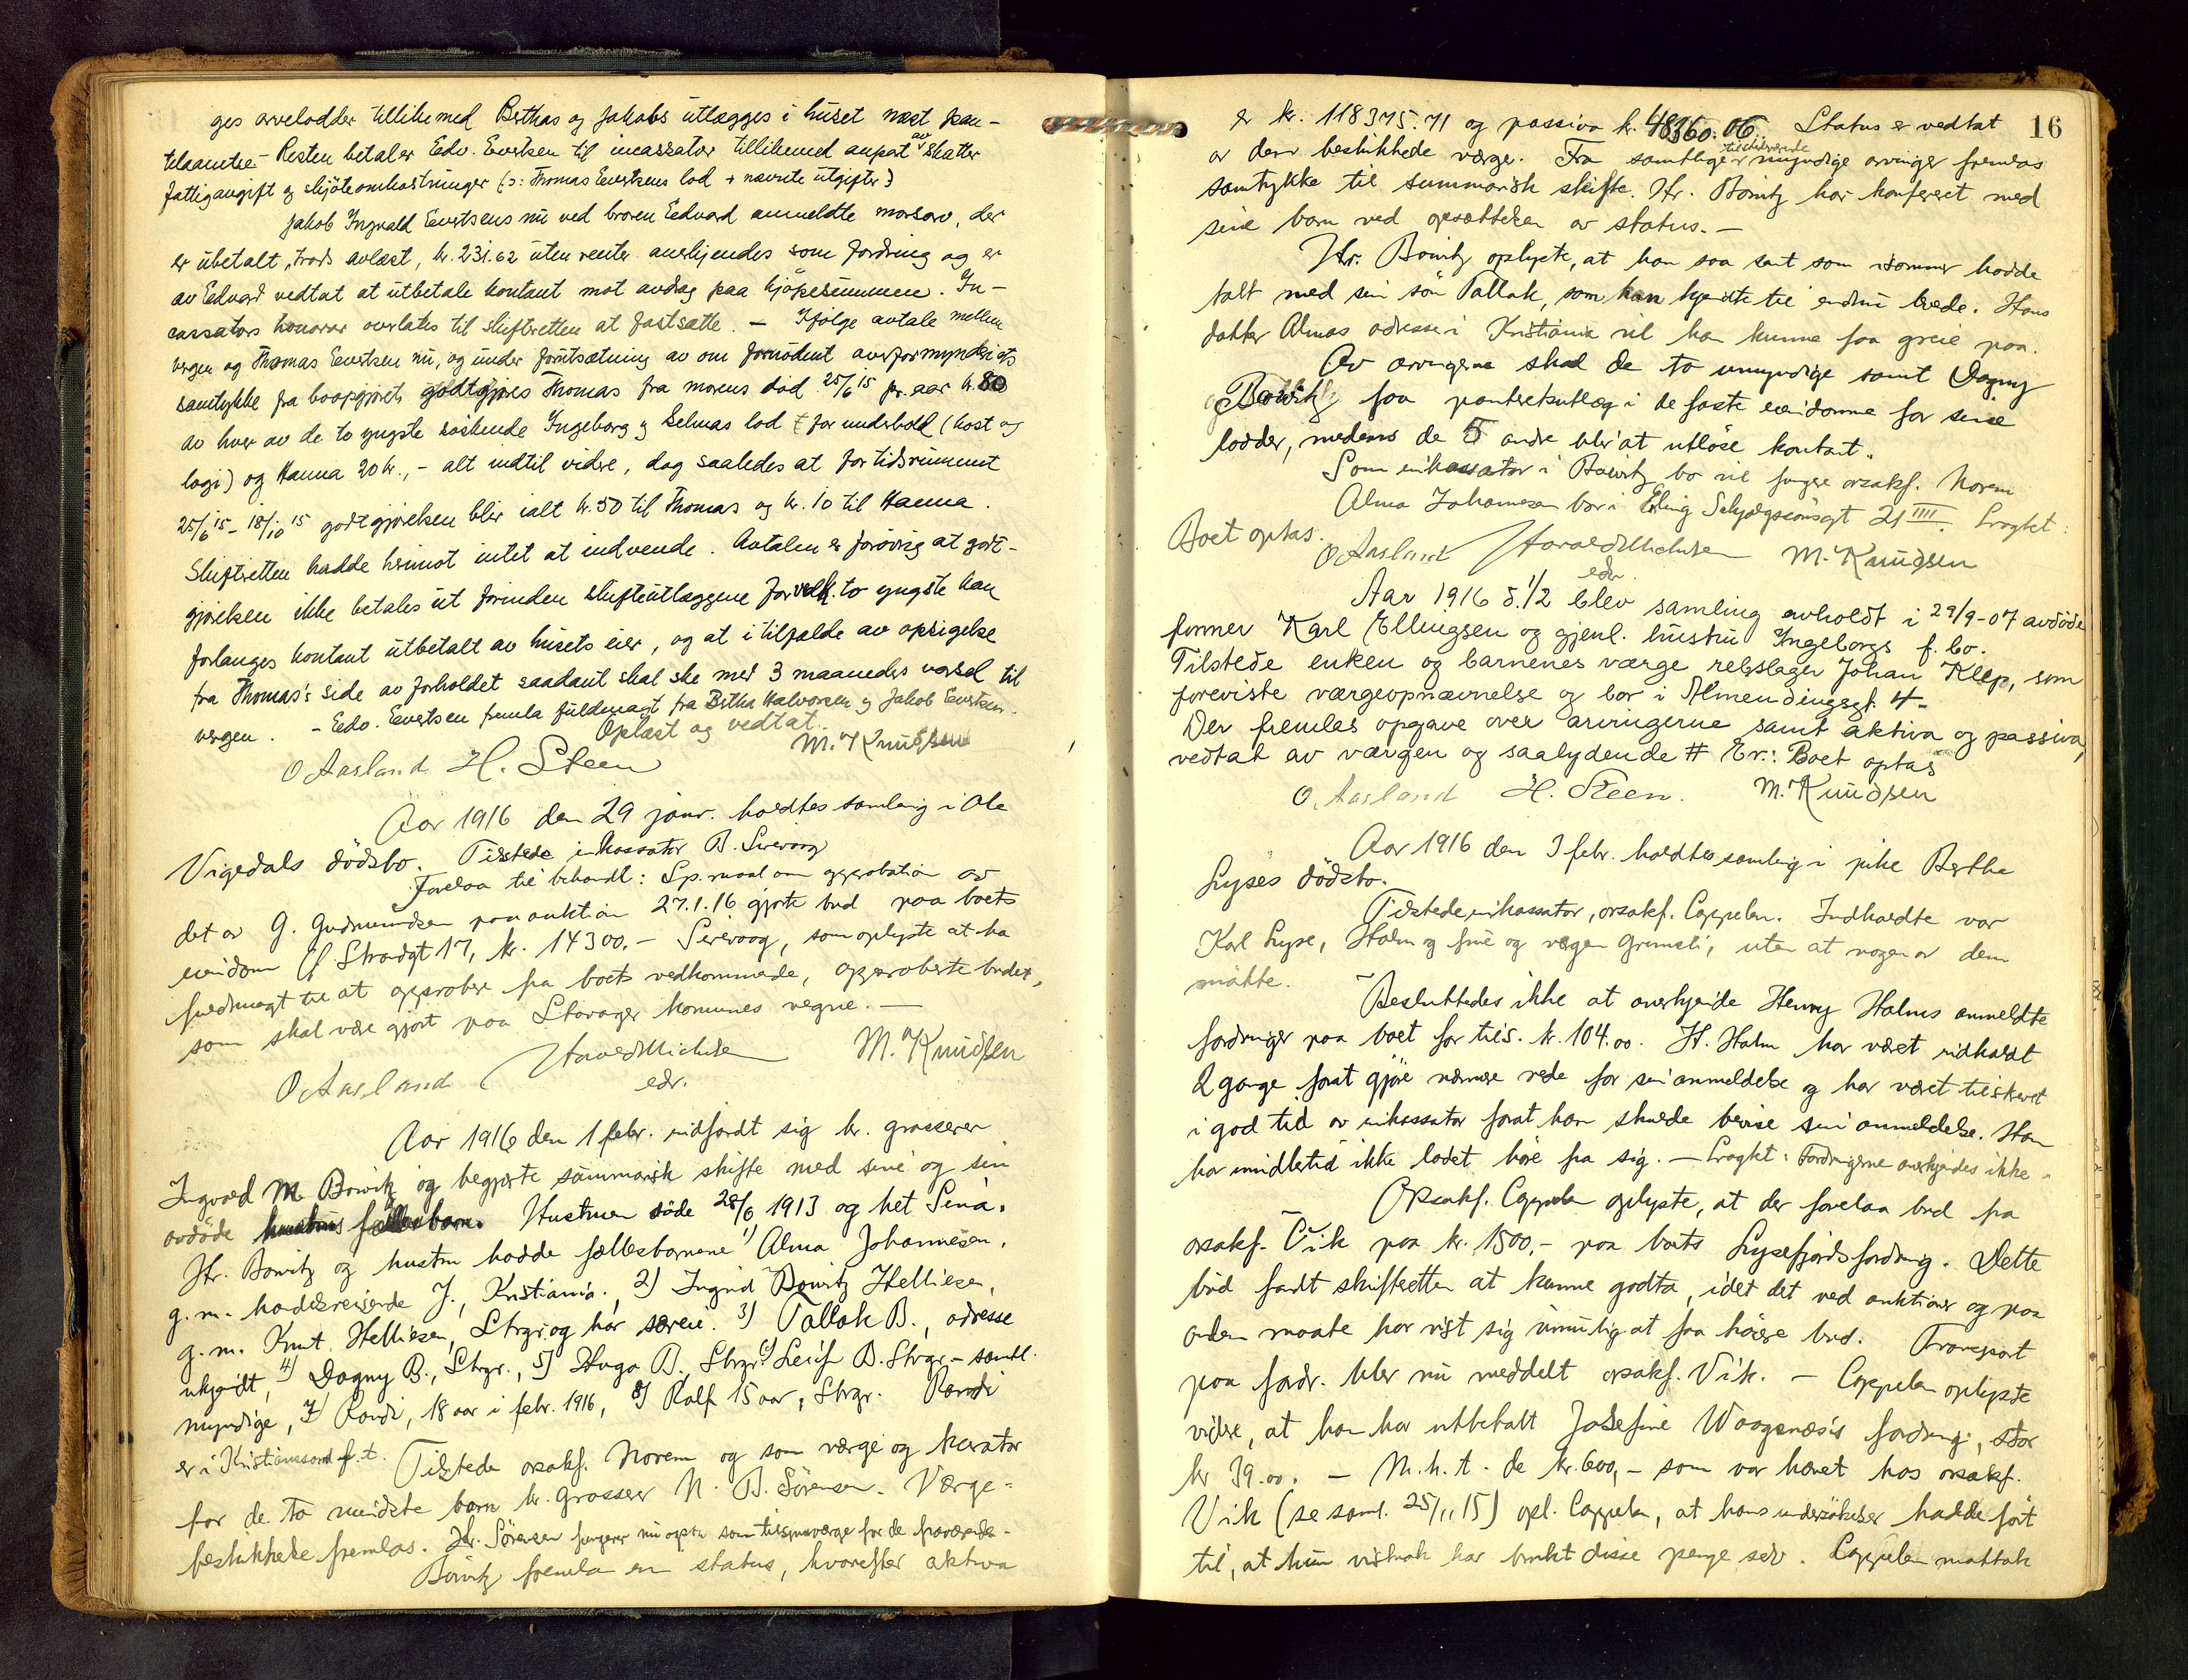 ges arvelodder tillikemed Berthas og Jakobs utlægges i huset næst pan-
telaantet. Resten betaler Edv. Evertsen til incassator tillikemed anpart av skatter
fattigavgift og skjöteomkostninger (ɔ: Thomas Evertsens lod + nævnte utgifter)
Jakob Ingvald Evertsens nu ved broren Edvard anmeldte morsarv, der
er ubetalt, trods avlæst, kr. 231.62 uten renter anerkjendes som fordring og er
av Edvard vedtat at utbetale kontant mot avdrag paa kjöpesummen. In-
cassators honorar overlates til skifteretten at fastsætte. - Ifölge avtale mellem
vergen og Thomas Evertsen nu, og under forutsætning av om fornödent overformynderiets
samtykke fra boopgjöret godtgjöres Thomas fra morens död 25/6 15 pr. aar kr. 80
av hver av de to yngste söskende Ingeborg og Selmas lod for underhold (kost og
logi) og Hanna 20 kr., - alt indtil videre, dog saaledes at for tidsrummet
25/6 15 - 18/10 15 godtgjörelsen blir ialt kr. 50 til Thomas og kr. 10 til Hanna.
Skifteretten hadde herimot intet at indvende. Avtalen er forövrig at godt-
gjörelsen ikke betales ut forinden skifteutlæggene for vedk. to yngste kan
forlanges kontant utbetalt av husets eier, og at i tilfælde av opsigelse
fra Thomas's side av forholdet saadant skal ske med 3 maaneders varsel til
vergen. - Edv. Evertsen fremla fuldmagt fra Bertha Halvorsen og Jakob Evertsen.
Oplæst og vedtat.
O Aasland H. Steen M. Knudsen
Aar 1916 den 29 janr. holdtes samling i Ole
Vigedals dödsbo. Tilstede inkassator B. Sirevaag
Forelaa til behandl: Sp.maal om approbation av
det av G. Gudmundsen paa auktion 27.1.16 gjorte bud paa boets
eiendom Strandgt 17, kr. 14300.- Sirevaag, som oplyste at ha
fuldmagt til at approbere fra boets vedkommende, approberte budet,
som skal være gjort paa Stavanger kommunes vegne. -
O Aasland Harald Michelsen M. Knudsen
edr.
Aar 1916 den 1 febr. indfandt sig hr. grosserer
Ingvald M. Bowitz og begjærte summarisk skifte med sine og sin
avdöde hustrus fællesbarn. Hustruen döde 28/6 1913 og het Sina.
Hr. Bowitz og hustru hadde fællesbarnene 1) Alma Johannesen,
g.m. handelsreisende J., Kristiania., 2) Ingrid Bowitz Helliesen,
g.m. Knut Helliesen, Stvgr. og har særeie. 3) Tallak B., adresse
ukjendt, 4) Dagny B., Stvgr., 5) Hugo B., Stvgr. 6) Leif B. Stvgr. - samtl.
myndige, 7) Randi, 18 aar i febr. 1916, 8) Ralf 15 aar, Stvgr. Randi
er i Kristianssand f.t. Tilstede orsakf. Norem og som værge og kurator
for de to mindste barn hr. grosserer N. B. Sörensen. Værge-
beskikkelse fremlas. Hr. Sörensen fungerer nu ogsaa som tilsynsværge for de fraværende -
Bowitz fremla en status, hvorefter aktiva
16
er kr. 118375.71 og passiva kr. 48360.06. Status er vedtat
av den beskikkede værge. Fra samtlige tilstedeværende myndige arvinger fremlas
samtykke til summarisk skifte. Hr. Bowitz har konferert med
sine barn ved opsættelsen av status. -
Hr. Bowitz oplyste, at han saa sent som isommer hadde
talt med sin sön Tallak, som han kjendte til endnu levede. Hans
datter Almas adresse i Kristiania vil han kunne faa greie paa.
Av arvingerne skal de to umyndige samt Dagny
Bowitz faa panteretsutlæg i de faste eiendomme for sine
lodder, medens de 5 andre blir at utlöse kontant.
Som inkassator i Bowitz bo vil fungere orsakf. Norem
Alma Johannesen bor i Eling Schjalgsönsgt 21 IIII. Eragtet:
Boet optas.
O Aasland Harald Michelsen M. Knudsen
edr.
Aar 1916 d. 1/2 blev samling avholdt i 29/9-07 avdöde
former Karl Ellingsen og gjenl. hustru Ingeborgs f. bo.
Tilstede enken og barnenes værge rebslager Johan Klep, som
foreviste værgeopnævnelse og bor i Almendingsgt. 4-
Der fremlas opgave over arvingerne samt aktiva og passiva,
vedtat av værgen og saalydende # Er.: Boet optas
O. Aasland H. Steen. M. Knudsen
Aar 1916 den 3 febr. holdtes samling i pike Berthe
Lyses dödsbo.
Tilstede inkassator, orsakf. Cappelen. Indkaldte var
Karl Lyse, Holm og frue og vergen Grimeli, uten at nogen av dem
mötte.
Besluttedes ikke at anerkjende Henry Holms anmeldte
fordringer paa boet for tils. kr. 104.00. H. Holm har været indkaldt
2 gange forat gjöre nærmere rede for sin anmeldelse og har været tilskrevet
i god tid av inkassator forat han skulde bevise sin anmeldelse. Han
har imidlertid ikke ladet höre fra sig. - Eragtet: Fordringerne anerkjendes ikke.
Orsakf. Cappelen oplyste, at der forelaa bud fra
orsakf. Vik paa kr. 1500,- paa boets Lysefjordsfordring. Dette
bud fandt skifteretten at kunne godta, idet det ved auktioner og paa
anden maate har vist sig umulig at faa höiere bud. Transport
paa fordr. blev nu meddelt orsakf. Vik. - Cappelen oplyste
videre, at han har utbetalt Josefine Waagenæs's fordring, stor
kr 39.00. - M.h.t. de kr. 600,- som var hævet hos orsakf.
Vik (se saml. 25/11 15) opl. Cappelen, at hans undersökelser hadde fört
til, at hun vistnok har brukt disse penge selv. Cappelen mottok